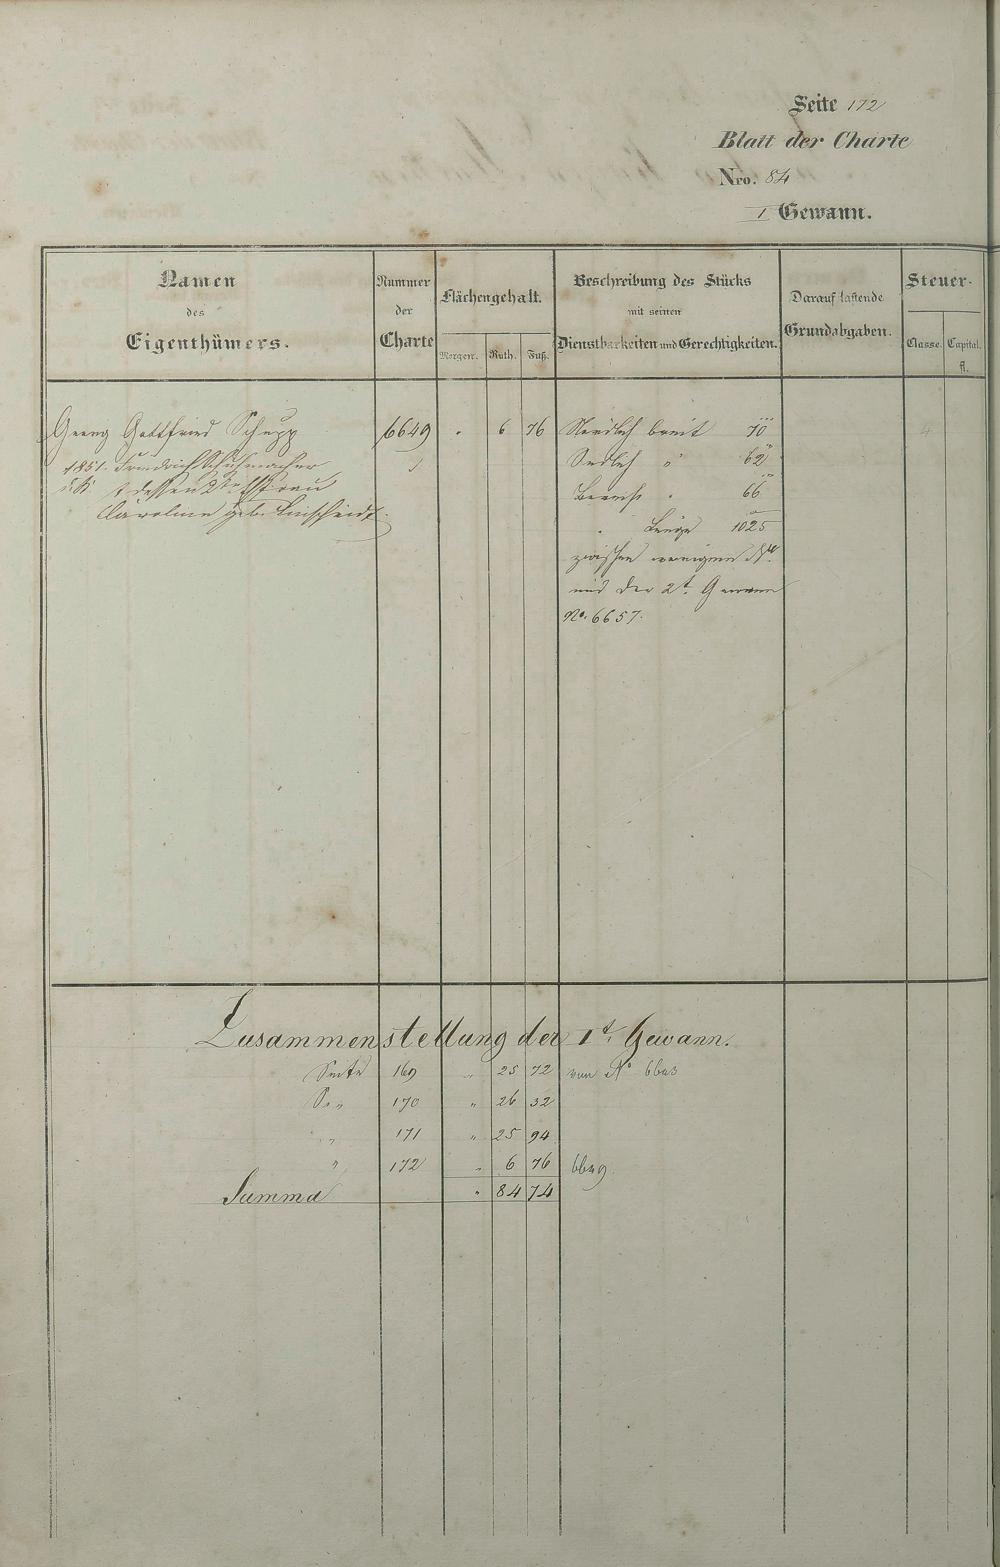 Seite 172
Blatt der Charte
Nro. 84
I Gewann.
Namen des Eigenthümers.
Nummer der Charte
Flächengehalt.
Morgen. Ruth. Fuß.
Beschreibung des Stücks mit seinen Dienstbarkeiten und Gerechtigkeiten.
Darauf lastende Grundabgaben.
Steuer-
Classe. Capital. fl.
Georg Gottfried Schupp 6649 " 6 76 Nordlich breit 70
1851. Friedrich Schuhmacher Sudlich " 62
u. K. dessen 2te Ehefrau 66
Caroline geb. Linscheidt Länge 1025
zwischen voriger No.
und der 2t. Gewann
No. 6657.
4
Zusammenstellung der 1t. Gewann.
Seite 169 " 25 72 von No 6643
S. " 170 " 26 32
" 171 " 25 94
" 172 " 6 76 6649.
Summa " 84 74